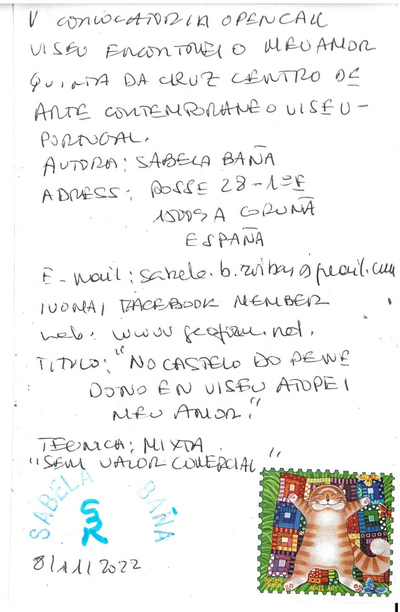 V CONVOCATORIA OPENCALL
VISEU ENCONTREI O MEU AMOR
QUINTA DA CRUZ CENTRO DE
ARTE CONTEMPORANEO VISEU-
PORTUGAL.
AUTORA: SABELA BAÑA
ADRESS: POSSE 28-1º
15009 A CORUÑA
ESPAÑA
E-mail:
IUOMA, FACEBOOK MEMBER
web: www
TITULO: "NO CASTELO DO
DONO EN VISEU ATOPEI
MEU AMOR."
TECNICA: MIXTA
"SEM VALOR COMERCIAL"
SABELA BAÑA
8/11/2022
MAIL ART